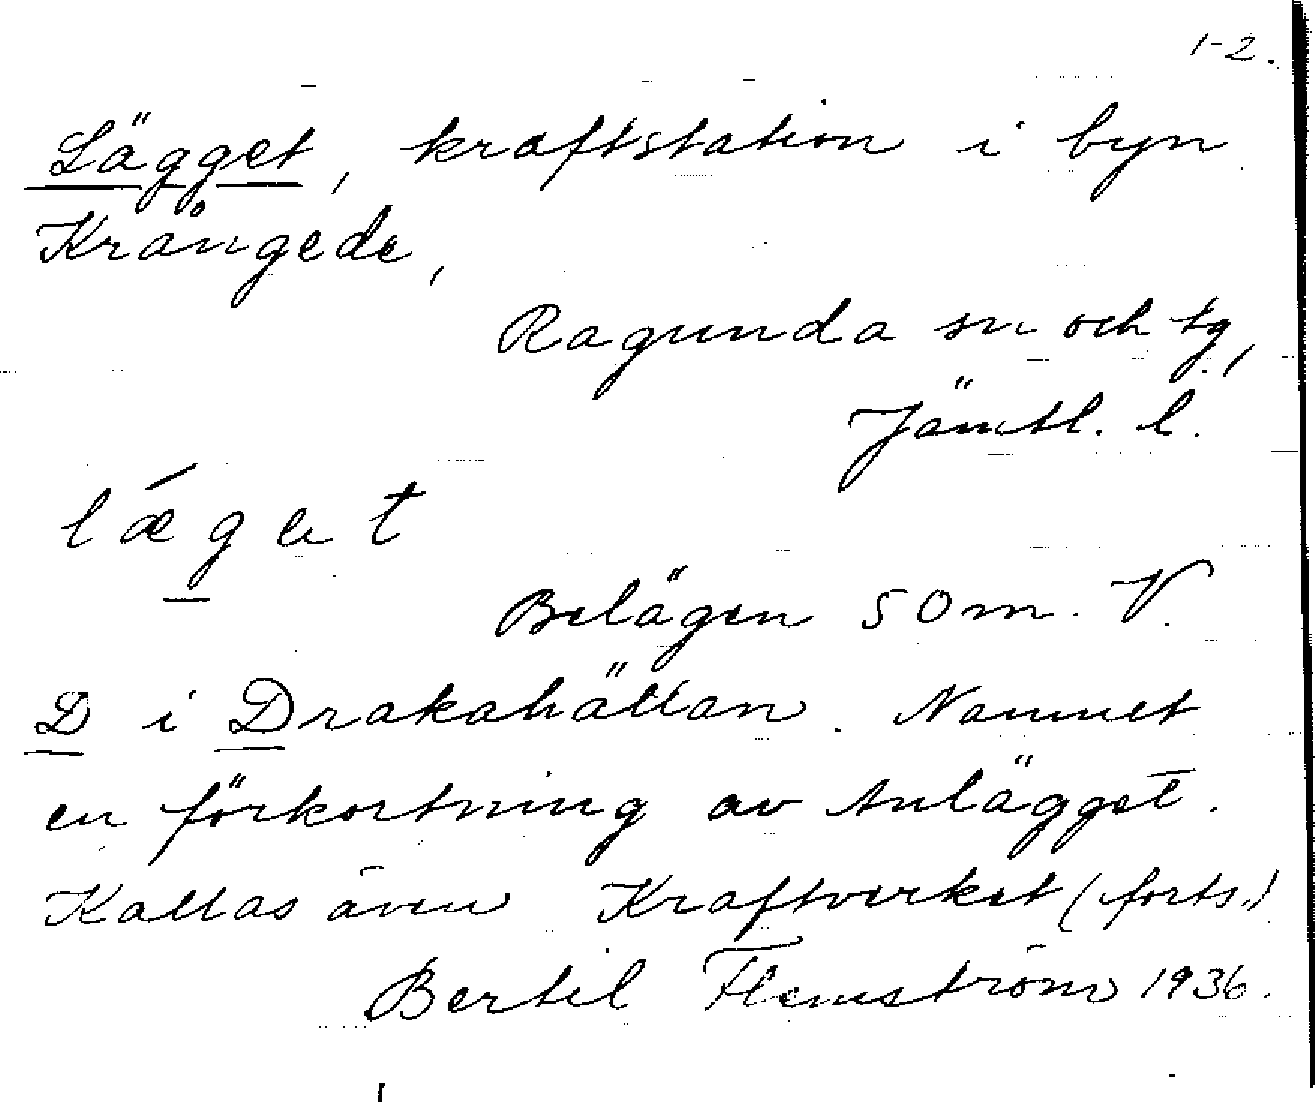 1-2.
Lägget, kraftstation i byn
Krångede,
Ragunda sn och tg,
Jämtl. l.
lǽget
Belägen 50 m. V.
D i Drakahällan. Namnet
en förkortning av Anlägget.
Kallas även Kraftverket (forts.)
Bertil Flemström 1936.